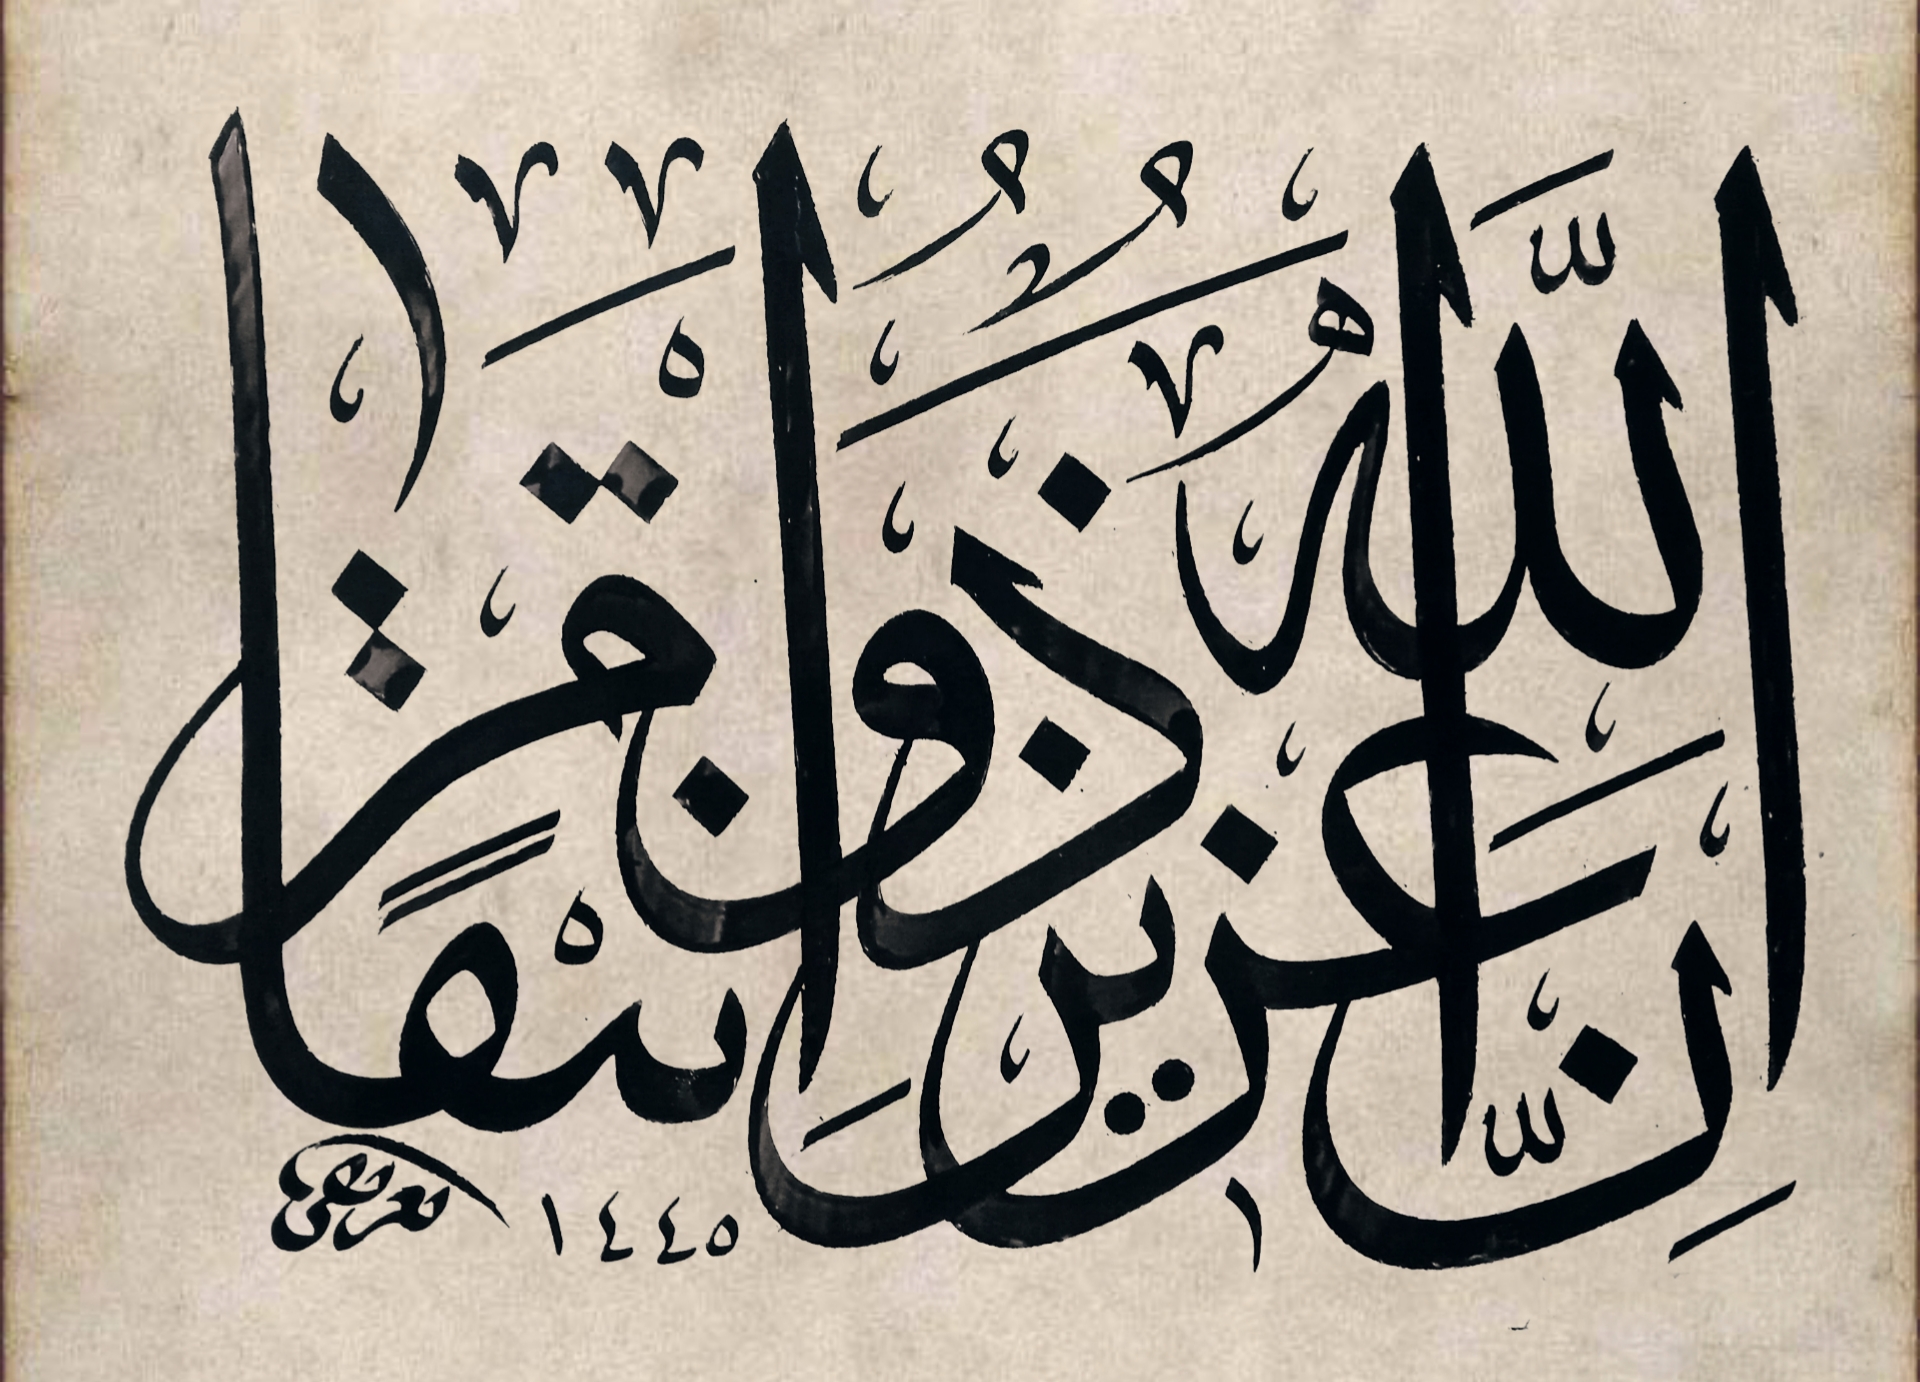 اِنَّ اللّٰهَ عَزِيزٌ ذُو انْتِقَامٍ
١٤٤٥